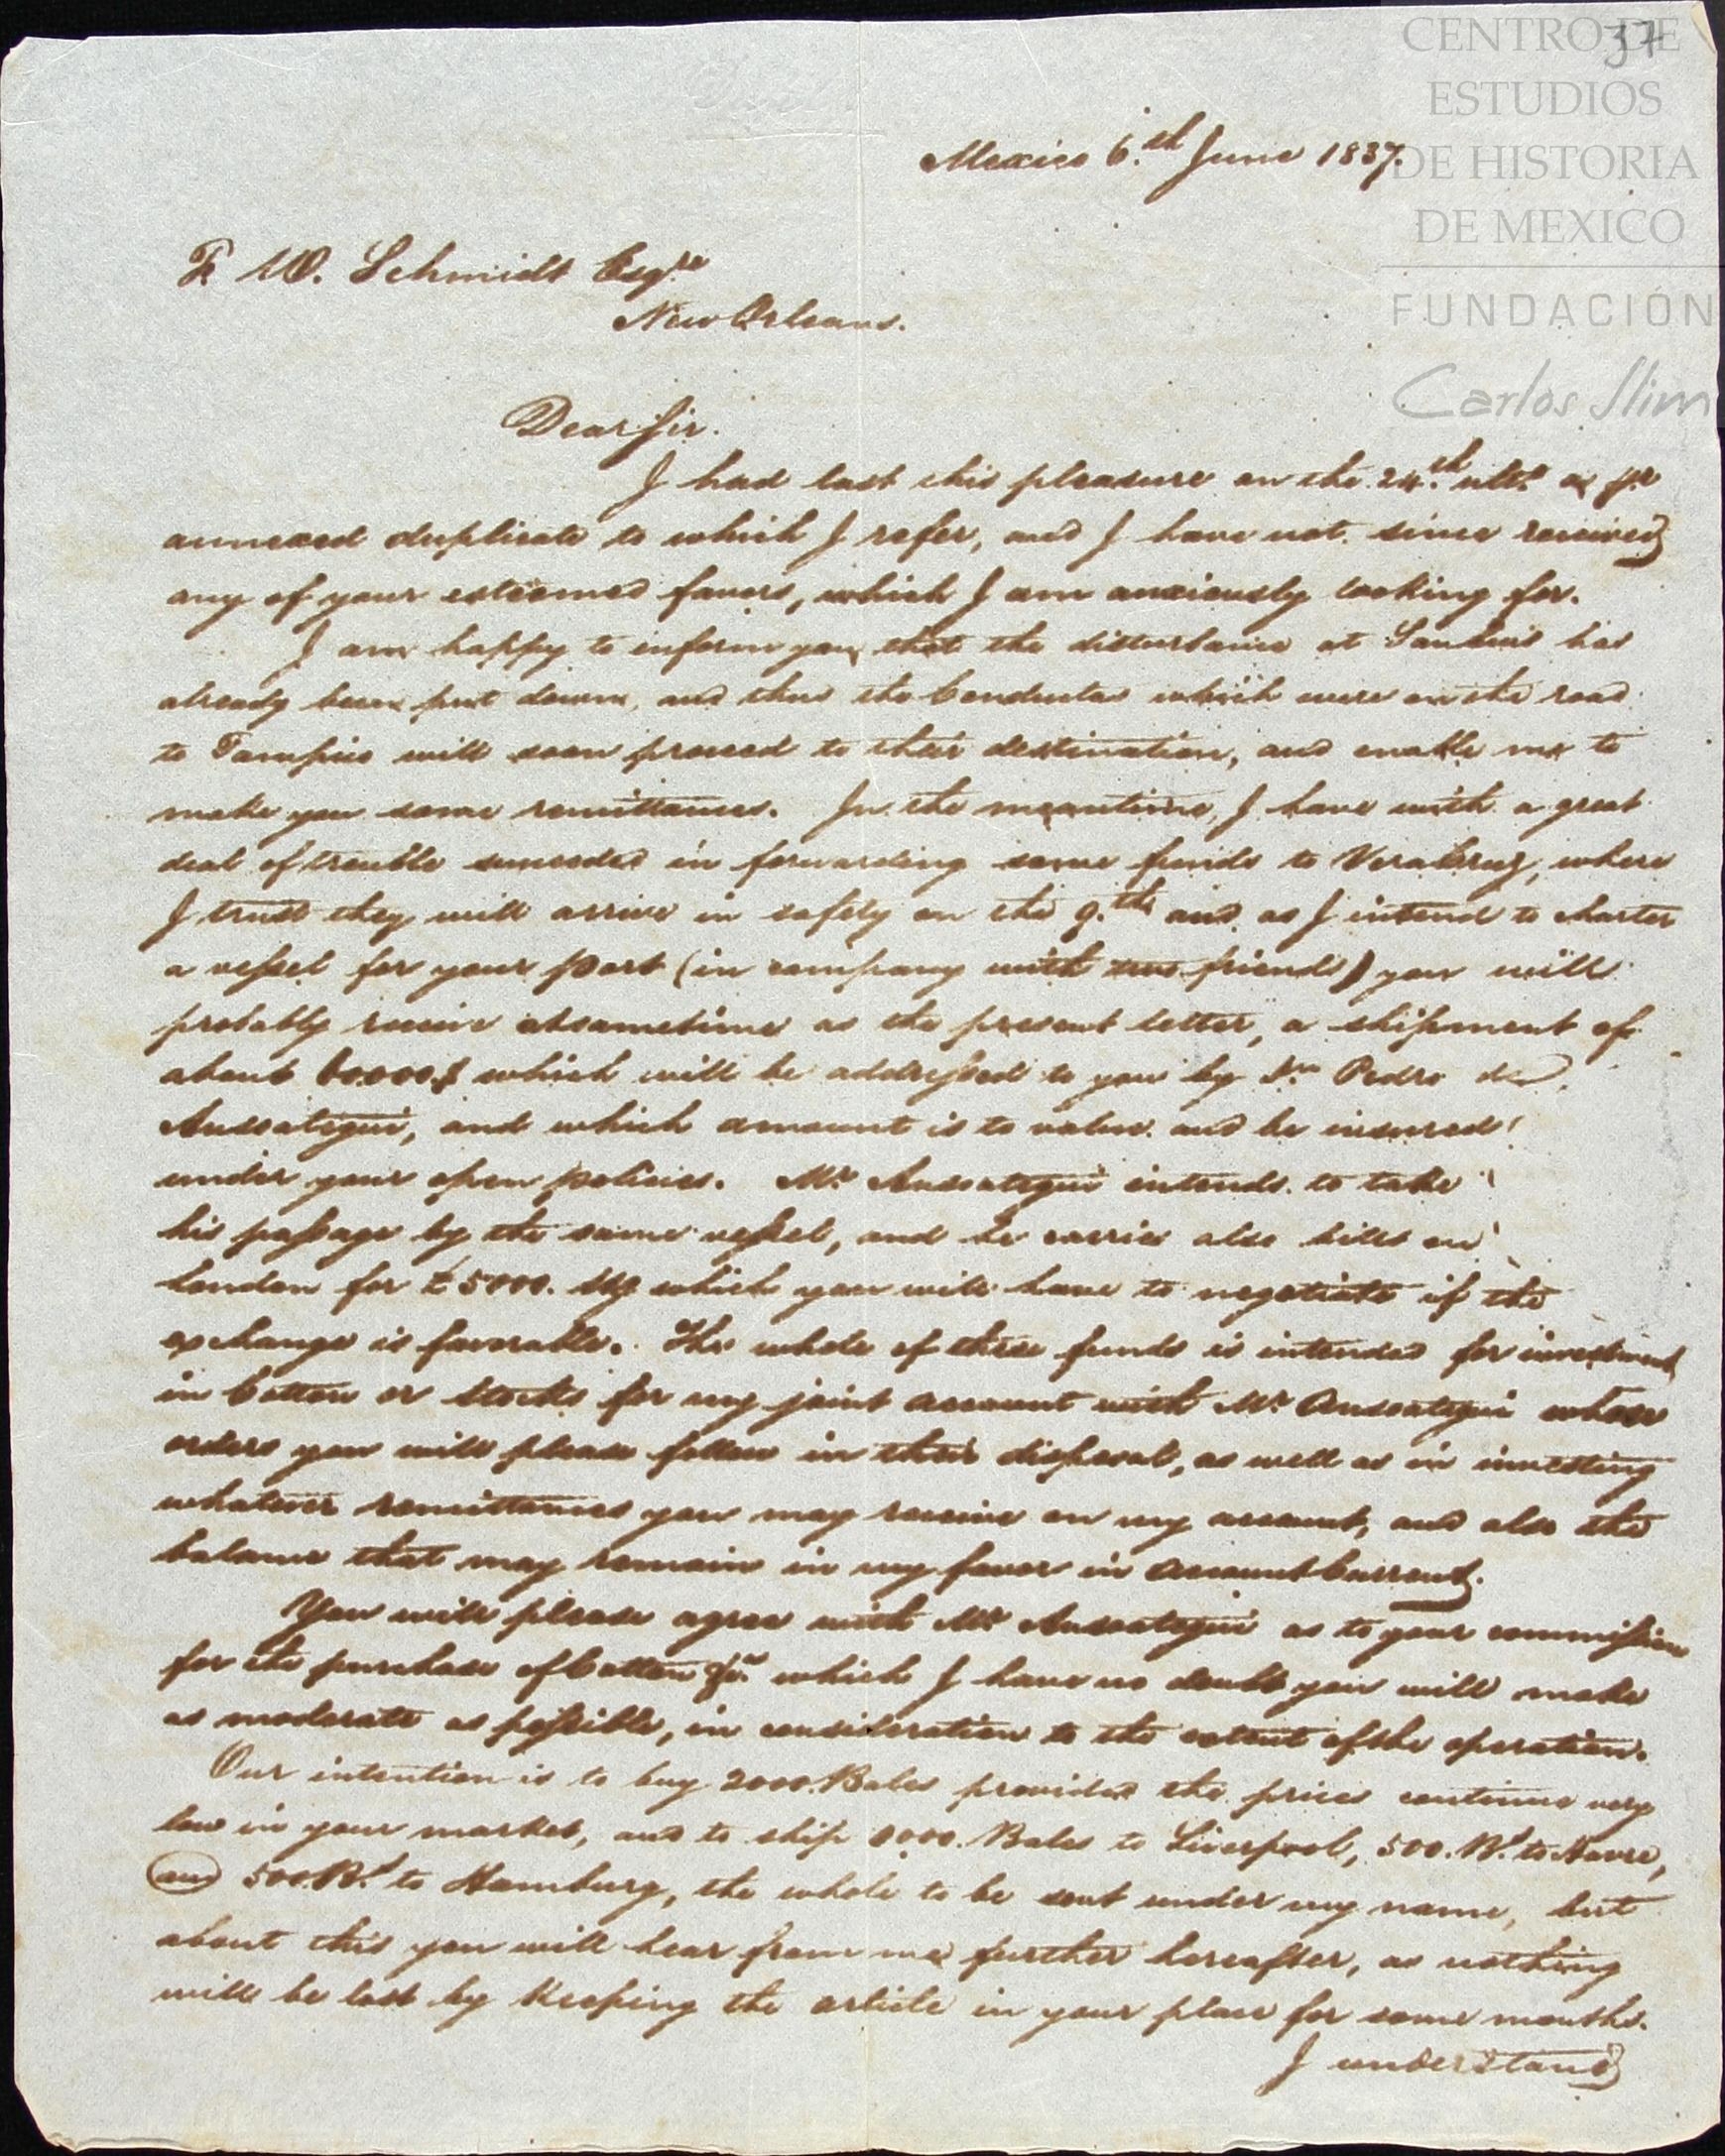 37
CENTRO DE
ESTUDIOS
DE HISTORIA
DE MEXICO
FUNDACIÓN
Carlos Slim
Mexico 6.th June 1837.
F. W. Schmidt Esqre
New Orleans.
Dear Sir.
I had last this pleasure on the 24.th ulto. as pr
annexed duplicate to which I refer, and I have not since received
any of your esteemed favors, which I am anxiously looking for.
I am happy to inform you, that the disturbance at Sanluis has
already been put down, and thus the Conductas which were on the road
to Tampico will soon proceed to their destination, and enable me to
make you some remittances. In the meantime, I have with a great
deal of trouble succeeded in forwarding some funds to VeraCruz, where
I trust they will arrive in safety on the 9.th and as I intend to charter
a vessel for your port (in company with two friends) you will
probably receive atsametime as the present letter, a shipment of
about 60.000.$ which will be addressed to you by Dn Pedro de
Ansoategui, and which amount is to value and be insured
under your open policies. Mr Ansoategui intends to take
his passage by the same vessel, and he carries also bills on
London for £5000. Stg which you will have to negotiate if the
exchange is favorable. The whole of these funds is intended for investment
in Cotton or Stocks for my joint account with Mr Ansoategui whose
orders you will please follow in their disposal, as well as in investing
whatever remittances you may receive on my account, and also the
balance that may remain in my favor in account Current.
You will please agree with Mr Ansoategui as to your commission
for the purchase of Cotton &ca. which I have no doubt you will make
as moderate as possible, in consideration to the extent of the operation.
Our intention is to buy 2000. Bales provided the prices continue very
low in your market, and to ship Bales to Liverpool, 500. Bs. to Havre,
and 500. Bs. to Hamburg, the whole to be sent under my name, but
about this you will hear from me further hereafter, as nothing
will be lost by keeping the article in your place for some months.
I understand